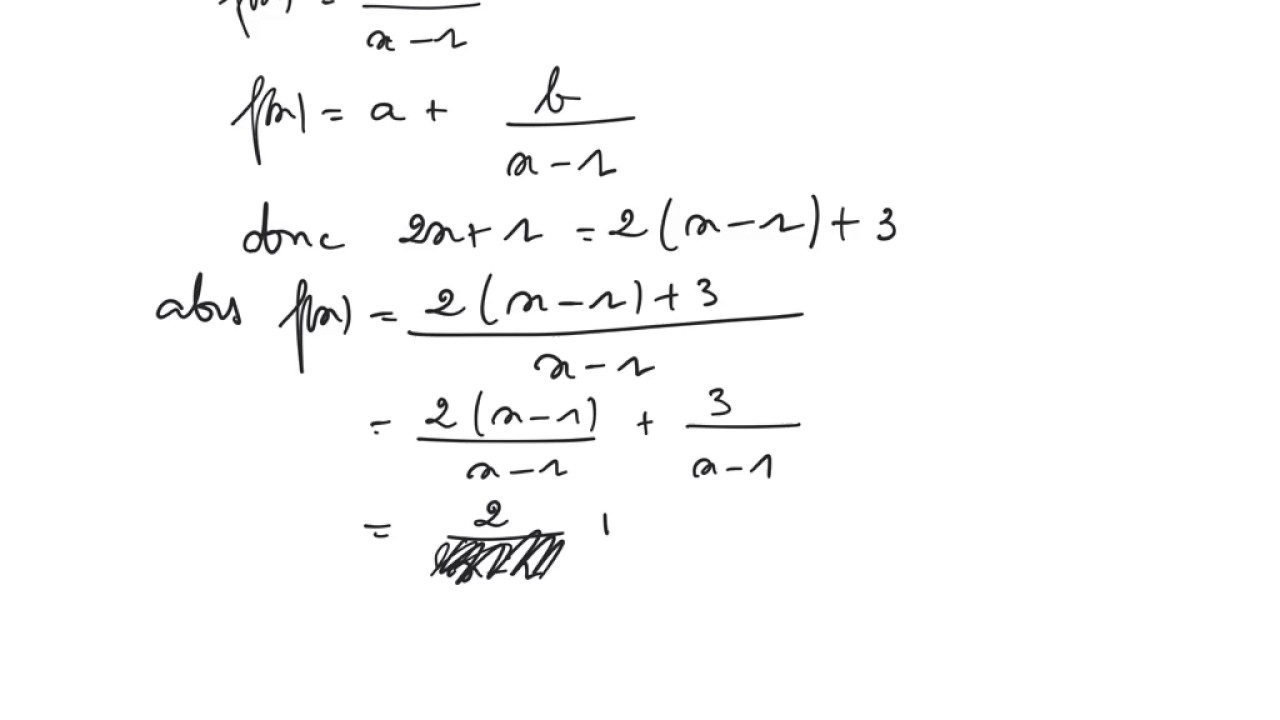 f(x) =
x - 1
f(x) = a + b / (x - 1)
donc 2x + 1 = 2(x - 1) + 3
alors f(x) = (2(x - 1) + 3) / (x - 1)
= 2(x - 1) / (x - 1) + 3 / (x - 1)
= 2